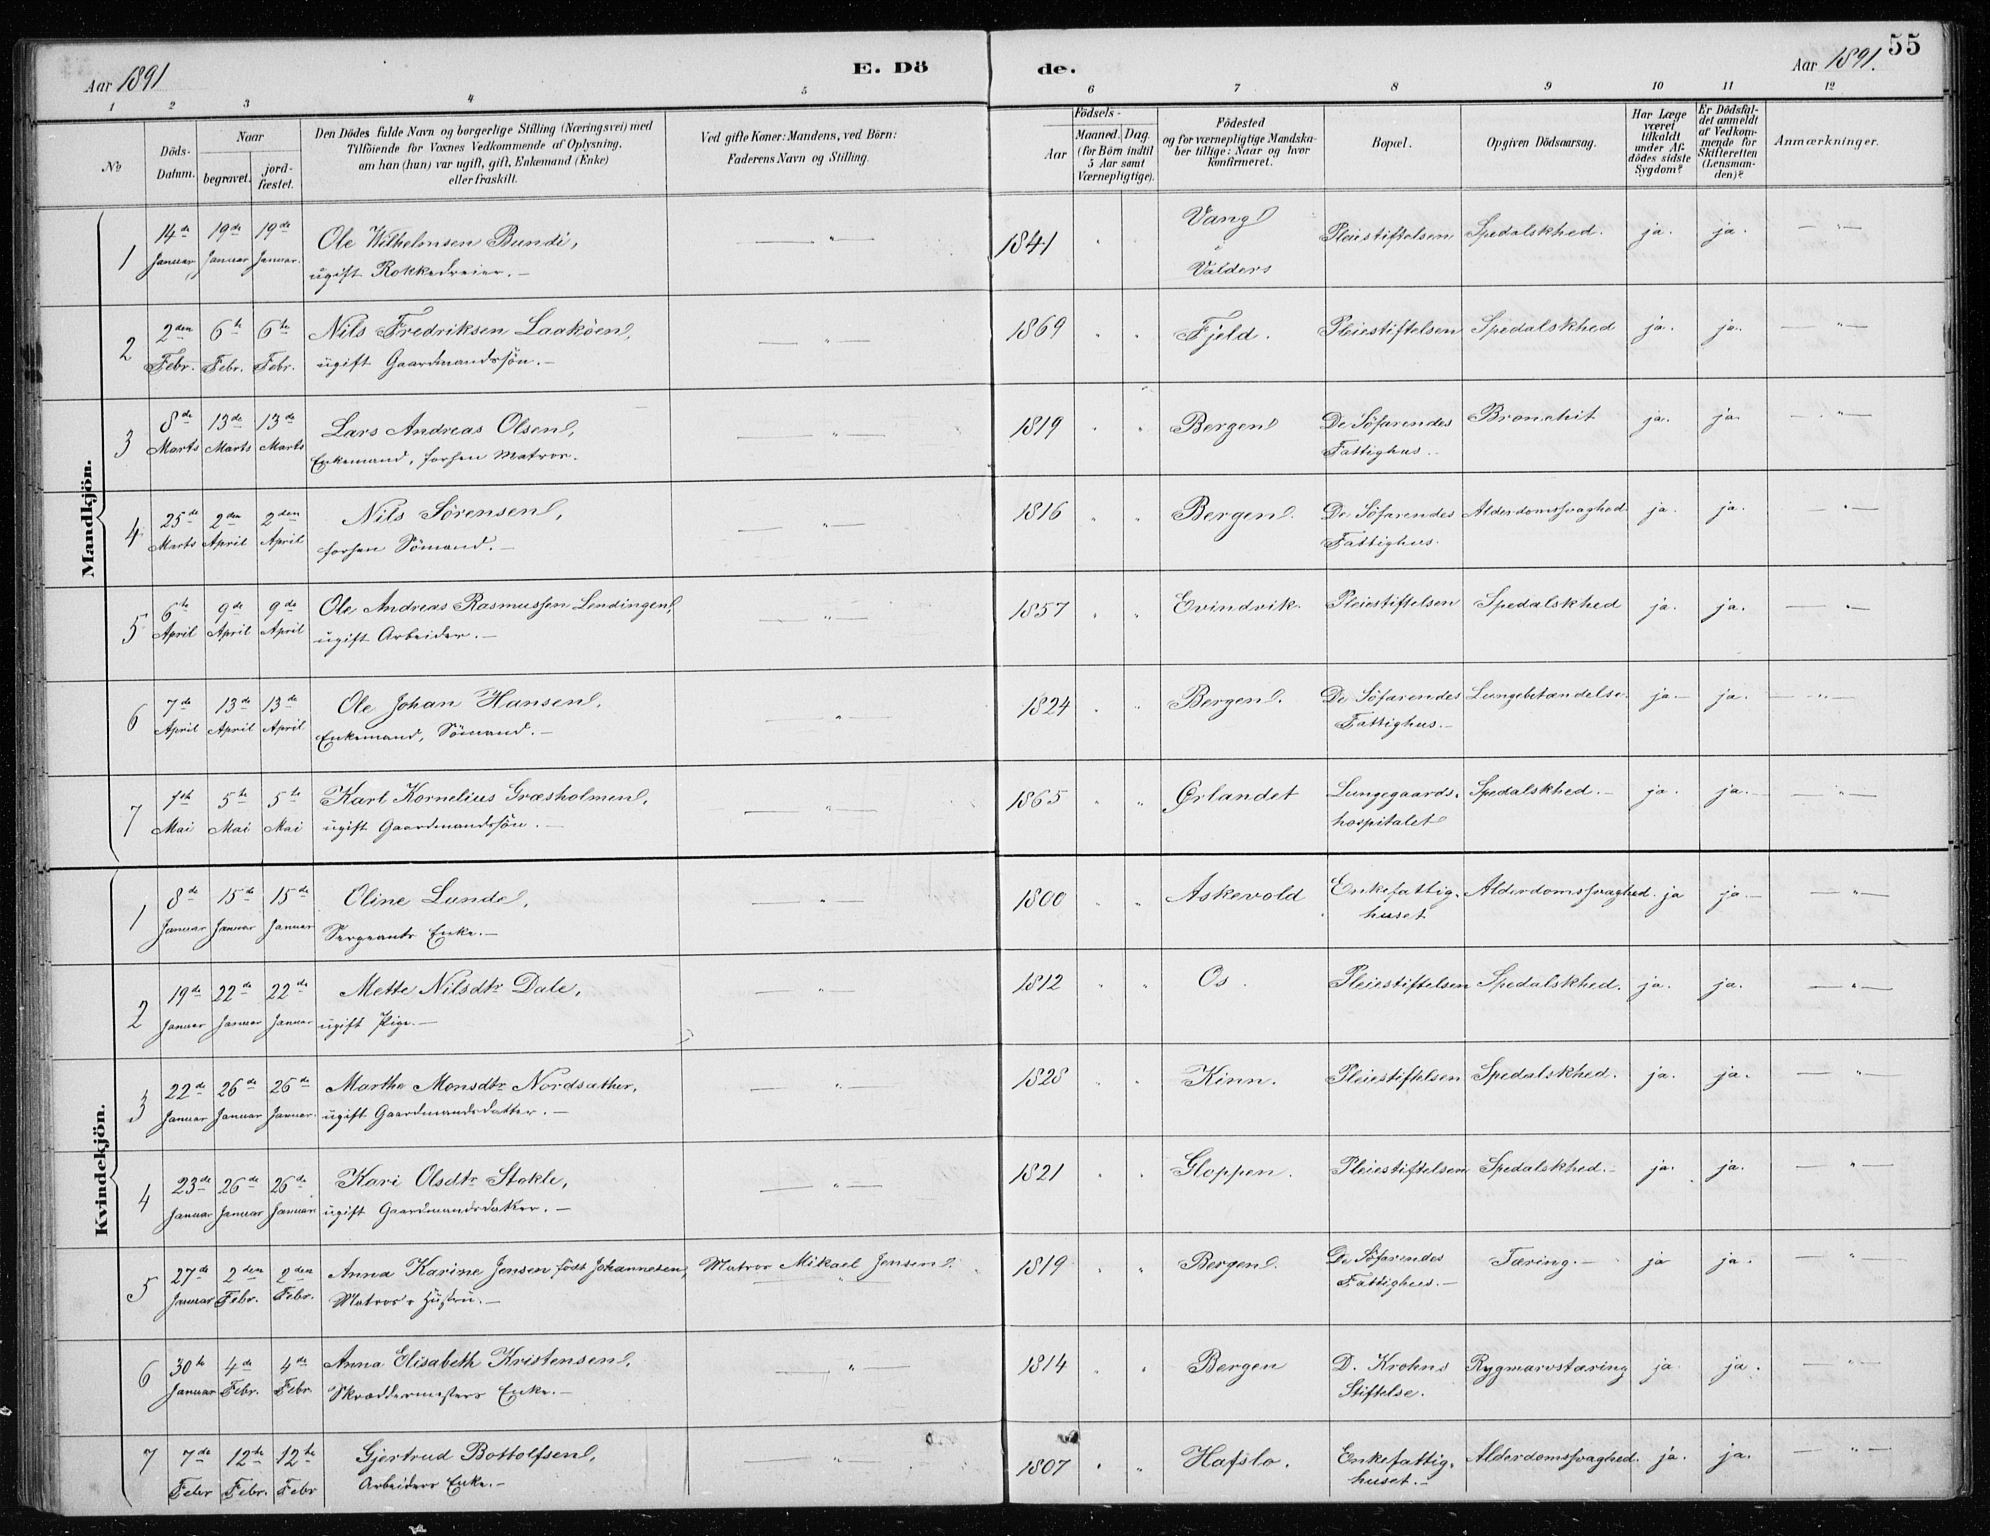 55
Aar 1891
E. Dö
de.
Aar 1891.
1 2 3 4 5 6 7 8 9 10 11 12
No
Döds-
Datum.
Naar
begravet.
jord-
fæstet.
Den Dödes fulde Navn og borgerlige Stilling (Næringsvei) med
Tilföiende for Voxnes Vedkommende af Oplysning,
om han (hun) var ugift, gift, Enkemand (Enke)
eller fraskilt.
Ved gifte Koner: Mandens, ved Börn:
Faderens Navn og Stilling.
Födsels-
Aar
Maaned. Dag.
(for Börn indtil
5 Aar samt
Værnepligtige).
Födested
og for værnepligtige Mandska-
ber tillige: Naar og hvor
konfirmeret.
Bopæl.
Opgiven Dödsaarsag.
Har Læge
været
tilkaldt
under Af-
dödes sidste
Sygdom?
Er Dödsfal-
det anmeldt
af Vedkom-
mende for
Skifteretten
(Lensman-
den)?
Anmærkninger.
Mandkjön.
1 14de Januar 19de Januar 19de Januar. Ole Wilhelmsen Bundi, — " — 1841 " Vang i Valders Pleiestiftelsen Spedalskhed. ja. ja. — " —
ugift Rokkedreier. —
2 2den Febr. 6te Febr. 6te Febr. Nils Fredriksen Laakøen, — " — 1869 " " Fjeld. Pleiestiftelsen Spedalskhed ja. ja. — " —
ugift Gaardmandssön. —
3 8de Marts 13de Marts 13de Marts Lars Andreas Olsen, — " — 1819 " " Bergen De Söfarendes Fattighus. Bronchit ja. ja. — " —
Enkemand, forhen Matros.
4 25de Marts 2den April 2den April Nils Sørensen, — " — 1816 " " Bergen. De Söfarendes Fattighus. Alderdomssvaghed ja. ja. " —
forhen Sömand. —
5 6te April 9de April 9de April Ole Andreas Rasmussen Lendingen, — " — 1857 " " Evindvik. Pleiestiftelsen Spedalskhed ja. ja. — " —
ugift Arbeider. —
6 7de April 13de April 13de April Ole Johan Hansen, — " — 1824 " " Bergen. De Söfarendes Fattighus. — Lungebetændelse. ja — ja. — " —
Enkemand, Sömand. —
7 1ste Mai 5te Mai 5te Mai Karl Kornelius Græsholmen, — " — 1865 " " Ørlandet Lungegaards-hospitalet Spedalskhed. — ja. ja. — " —
ugift Gaardmandssön. —
Kvindekjön.
1 8de Januar 15de Januar 15de Januar Oline Lunde, — " — 1800 " " Askevold Enkefattig-huset Alderdomssvaghed. ja ja. — — " —
Sergeants Enke. —
2 19de Januar 22de Januar 22de Januar Mette Nilsdtr Dale, — " — 1812 " " Os. Pleiestiftelsen Spedalskhed. ja. ja. — " —
ugift Pige. —
3 22de Januar 26de Januar 26de Januar. Marthe Monsdtr Nordsæther, — " — 1828 " " Kinn. Pleiestiftelsen Spedalskhed. ja. ja. — " —
ugift Gaardmandsdatter. —
4 23de Januar 26de Januar 26de Januar Kari Olsdtr Stokle, — " — 1821 " " Gloppen. Pleiestiftelsen Spedalskhed. — ja. ja. — " —
ugift Gaardmandsdatter. —
5 27de Januar 2den Febr. 2den Febr. Anna Karine Jensen föst Johannesen, Matros Mikael Jensen. 1819 " " Bergen. De Söfarendes Fattighus. — Tæring. — ja ja. "
Matros's Hustru. —
6 30te Januar 4de Febr. 4de Febr. Anna Elisabeth Kristensen, — " — 1814 " " Bergen D. Krohns Stiftelse. Rygmarvstæring ja. ja. — " —
Skræddermesters Enke. —
7 7de Febr 12te Febr. 12te Febr Gjertrud Bottolfsen, — " — 1807 " " Hafslo. Enkefattig-huset. — Alderdomssvaghed. ja. ja. — " —
Arbeiders Enke. —